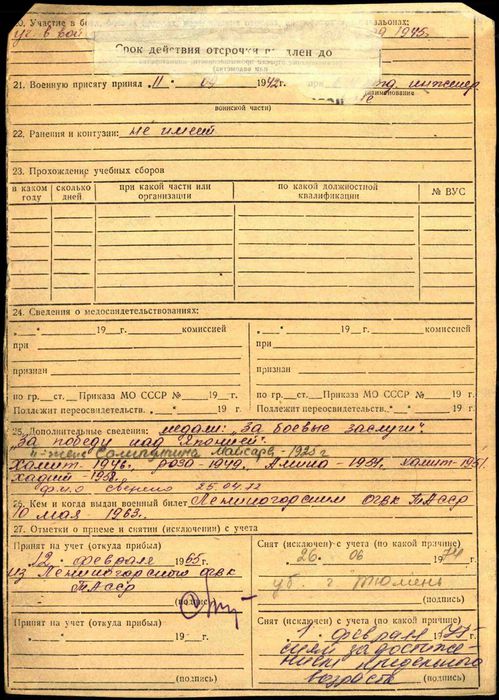 20. Участие в
1945.
Срок действия отсрочки до
21. Военную присягу принял „11" 1942 г. при инженер
(наименование
воинской части)
22. Ранения и контузии: не имеет
23. Прохождение учебных сборов
в каком году | сколько дней | при какой части или организации | по какой должностной квалификации | № ВУС
24. Сведения о медосвидетельствованиях:
„__"__ 19__ г. комиссией | „__"__ 19__ г. комиссией
при | при
признан | признан
по гр.__ ст.__ Приказа МО СССР №__ 19__ г. | по гр.__ ст.__ Приказа МО СССР №__ 19__ г.
Подлежит переосвидетельств. „__"__ 19__ г. | Подлежит переосвидетельств. „__"__ 19__ г.
25. Дополнительные сведения: медали: „За боевые заслуги".
„За победу над Японией".
жена 1925 г
Халит-1946. Роза-1949. Амина-1954. 
1958.
ф.и.о сверено 25.04.72
26. Кем и когда выдан военный билет Лениногорским огвк ТАССР
10 мая 1963.
27. Отметки о приеме и снятии (исключении) с учета
Принят на учет (откуда прибыл) | Снят (исключен) с учета (по какой причине)
„12" февраля 1965 г. | 26. 06 1974
из Лениногорского огвк | уб. г Тюмень
ТАССР
(подпись) | (подпись)
Принят на учет (откуда прибыл) | Снят (исключен) с учета (по какой причине)
„__"__ 19__ г. | „1" февраля 1977 г.
снят за достиже-
нием предельного
возраста
(подпись) | (подпись)